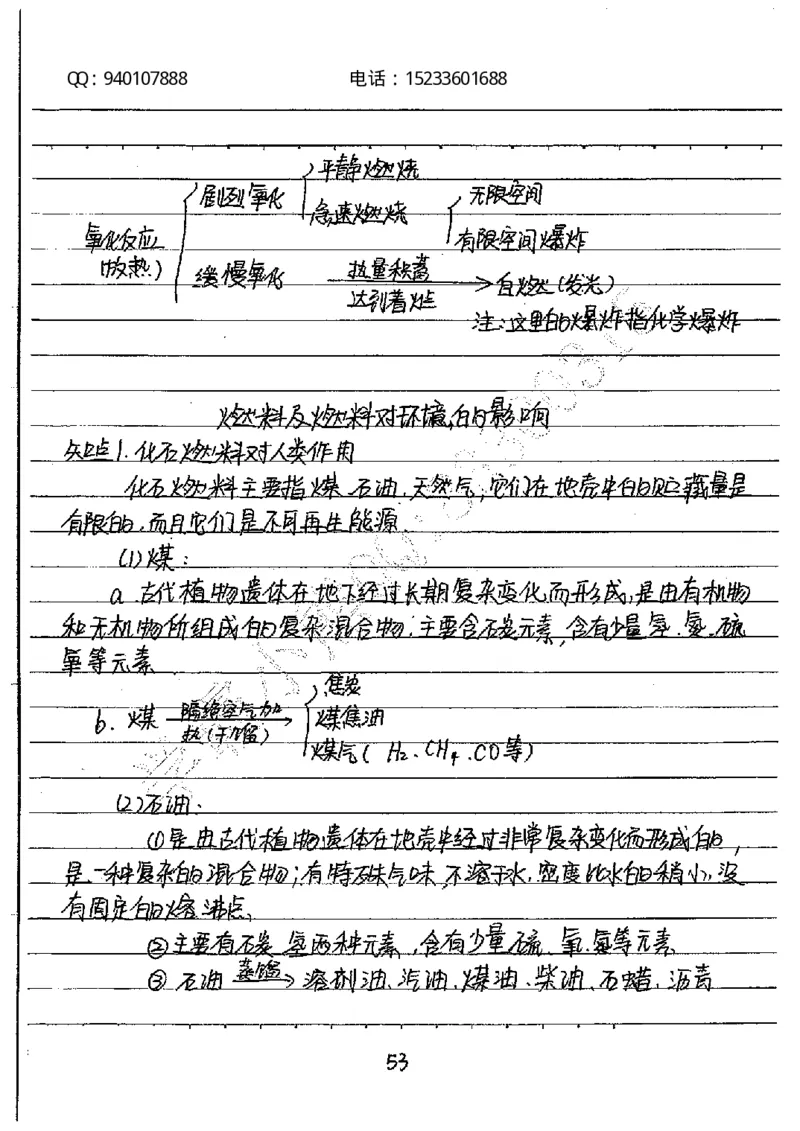 QQ：940107888 电话：15233601688
平静燃烧
剧烈氧化 急速燃烧 无限空间
氧化反应 有限空间爆炸
(放热) 缓慢氧化 热量积蓄 达到着火点 → 自燃(发光)
注：这里的爆炸指化学爆炸
燃料及燃料对环境的影响
知识点1.化石燃料对人类作用
化石燃料主要指煤.石油.天然气；它们在地壳中的贮藏量是
有限的,而且它们是不可再生能源.
(1)煤：
a.古代植物遗体在地下经过长期复杂变化而形成,是由有机物
和无机物所组成的复杂混合物；主要含石炭元素,含有少量氢.氮.硫
氧等元素
b.煤 隔绝空气加热(干馏) → 焦炭
煤焦油
煤气( H₂.CH₄.CO等)
(2)石油.
①是由古代植物遗体在地壳中经过非常复杂变化而形成的,
是一种复杂的混合物；有特殊气味,不溶于水.密度比水的稍小,没
有固定的熔沸点,
②主要有石炭 氢两种元素,含有少量硫、氧.氮等元素
③石油 蒸馏→ 溶剂油、汽油、煤油、柴油、石蜡、沥青
53